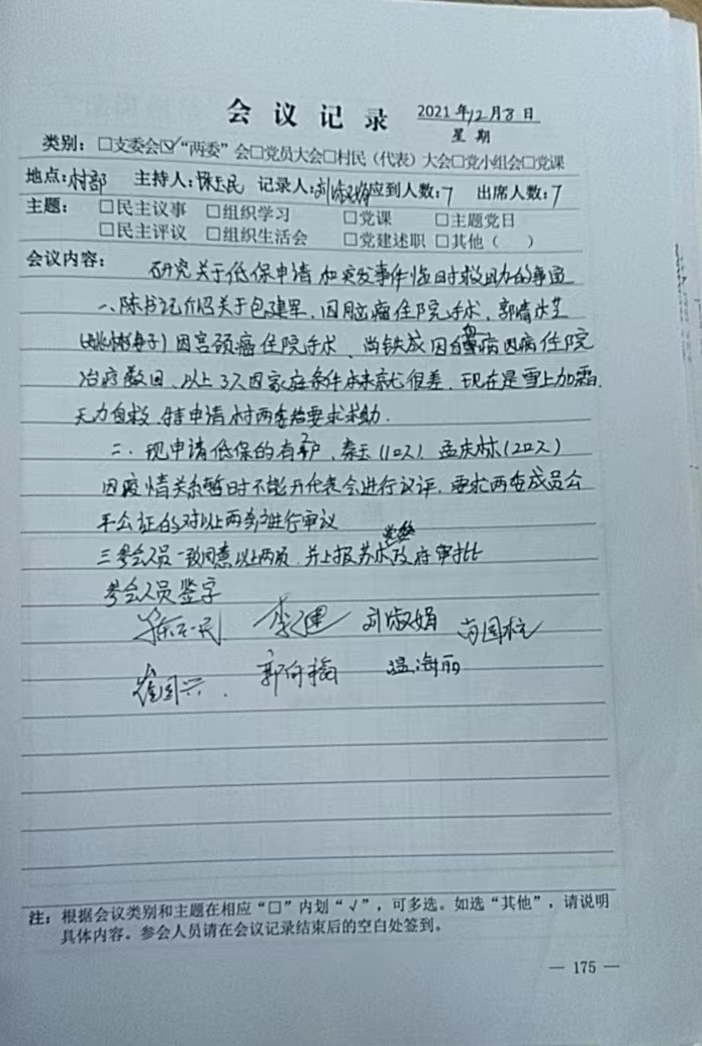 会议记录 2021年12月8日
星期
类别：□支委会☑“两委”会□党员大会□村民（代表）大会□党小组会□党课
地点：村部 主持人：陈玉民 记录人：刘淑娟 应到人数：7 出席人数：7
主题： □民主议事 □组织学习 □党课 □主题党日
□民主评议 □组织生活会 □党建述职 □其他（ ）
会议内容： 研究关于低保申请和突发事件临时救助的事宜
一、陈书记介绍关于包建军，因脑瘤住院手术，郭清
妻子）因宫颈癌住院手术、尚铁成因病住院
治疗数回，以上3人因家庭条件本来就很差，现在是雪上加霜，
无力自救，特申请村两委给要求求助．
二、现申请低保的有2户，秦玉（1口人）孟庆林（2口人）
因疫情关系暂时不能开代表会进行议评，要求两委成员公
平公证的对以上两户进行审议
三、参会人员一致同意以上两项，并上报苏木政府审批
参会人员签字
陈玉民 李建 刘淑娟 尚国柱
崔国兴 郭向福 温海丽
注：根据会议类别和主题在相应“□”内划“√”，可多选。如选“其他”，请说明
具体内容。参会人员请在会议记录结束后的空白处签到。
— 175 —